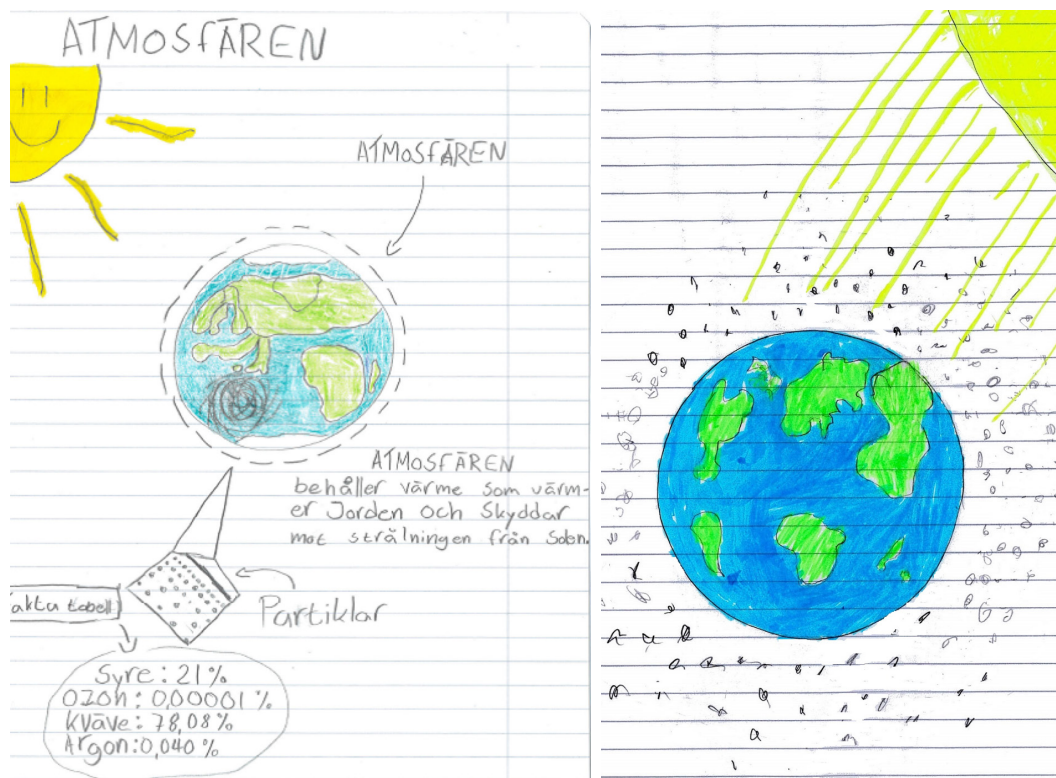 ATMOSFÄREN
ATMOSFÄREN
ATMOSFÄREN
behåller värme som värm-
er Jorden och Skyddar
mot strålningen från Solen.
Partiklar
aktu tabell
Syre: 21%
OZON: 0,00001%
Kväve: 78,08%
Argon: 0,040%